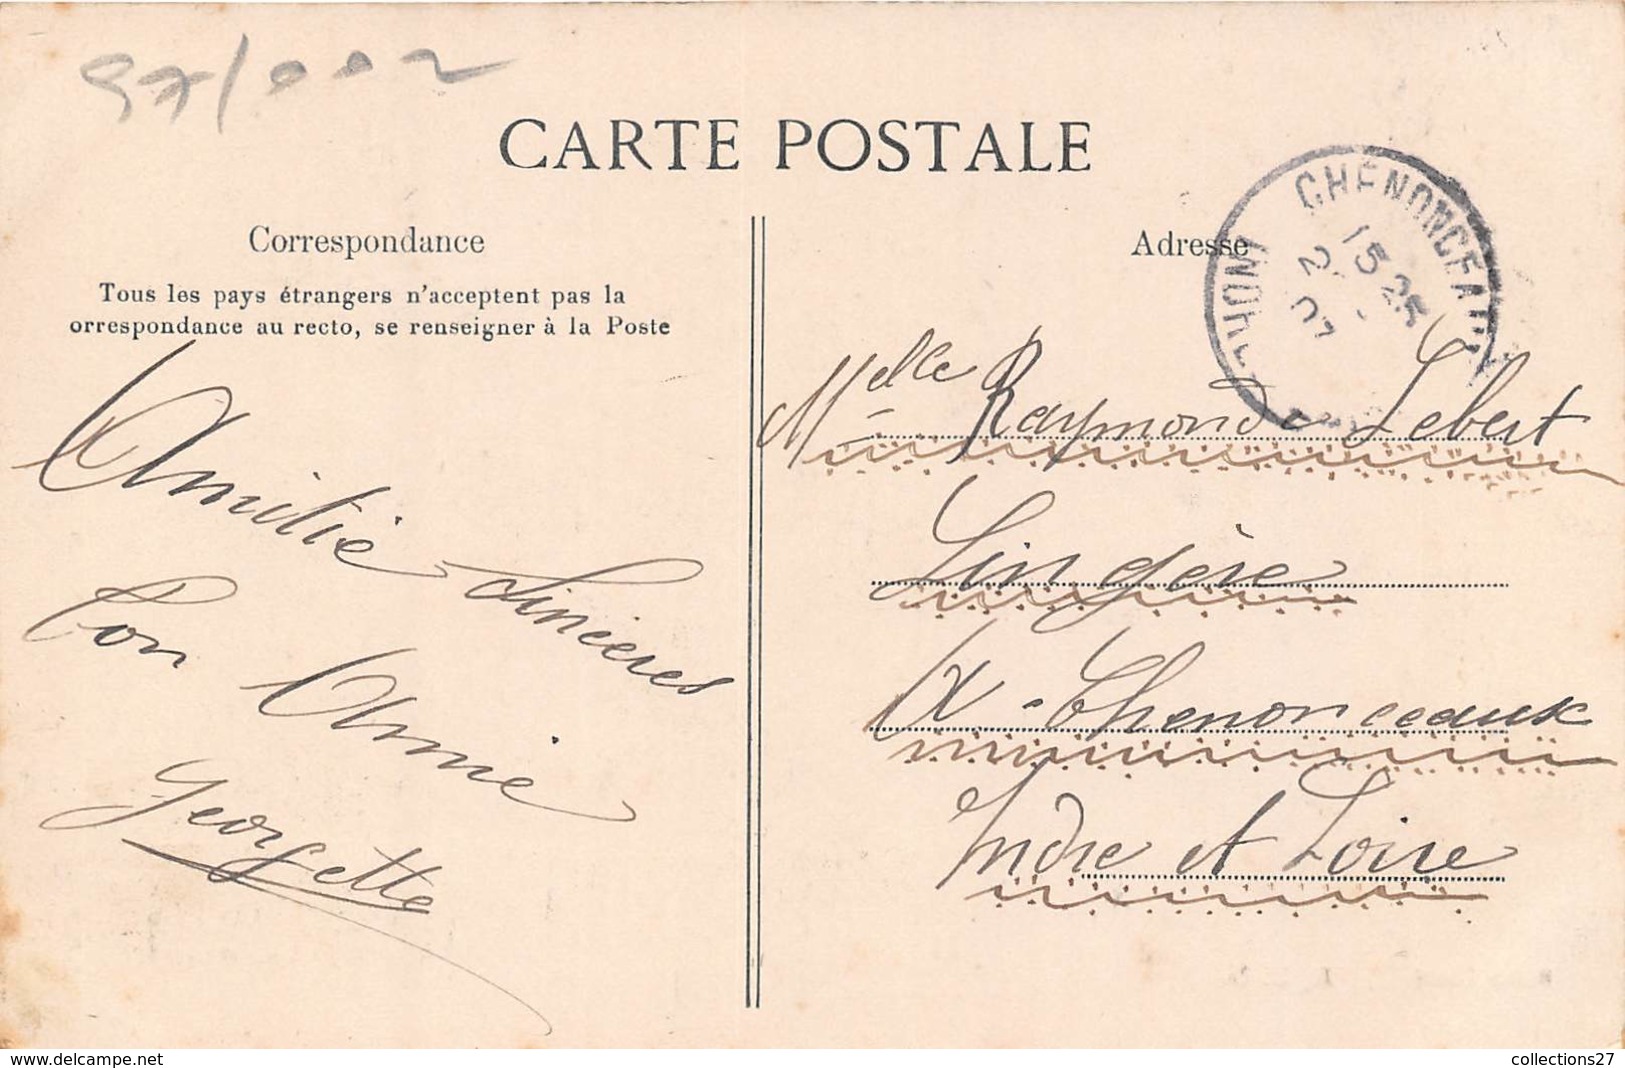 97/002
CARTE POSTALE
Correspondance
Tous les pays étrangers n'acceptent pas la
orrespondance au recto, se renseigner à la Poste
Amitié Sincères
Ton Amie
Georgette
Adresse
CHENONCEAUX
15 25
2
07
Melle Raymonde Lebert
Lingère
A Chenonceaux
Indre et Loire
www.delcampe.net
collections27